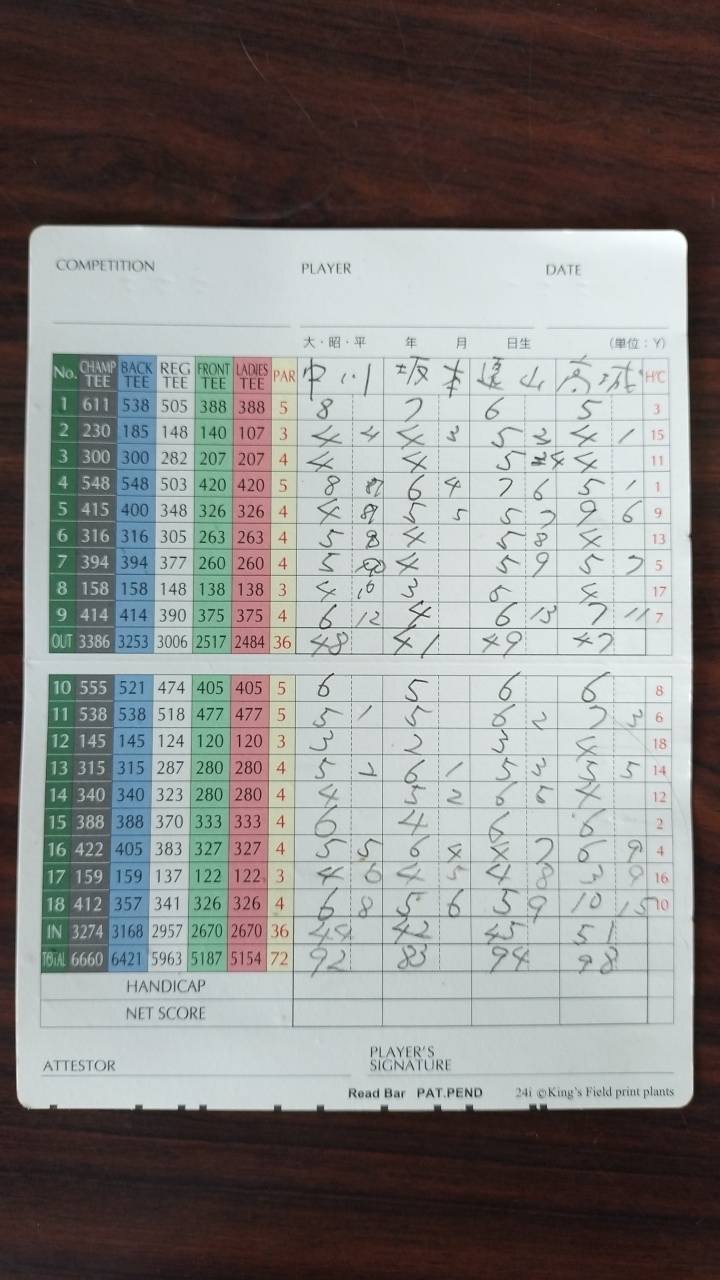 COMPETITION PLAYER DATE
大・昭・平 年 月 日生 (単位:Y)
No. CHAMP TEE BACK TEE REG TEE FRONT TEE LADIES TEE PAR 中川 坂本 遠山 高城 H'C
1 611 538 505 388 388 5 8 7 6 5 3
2 230 185 148 140 107 3 4 4 4 3 5 3 4 1 15
3 300 300 282 207 207 4 4 4 5 4 4 11
4 548 548 503 420 420 5 8 7 6 4 7 6 5 1 1
5 415 400 348 326 326 4 4 8 5 5 5 7 9 6 9
6 316 316 305 263 263 4 5 8 4 5 8 4 13
7 394 394 377 260 260 4 5 4 5 9 5 7 5
8 158 158 148 138 138 3 4 10 3 5 4 17
9 414 414 390 375 375 4 6 12 4 6 13 7 11 7
OUT 3386 3253 3006 2517 2484 36 48 41 49 47
10 555 521 474 405 405 5 6 5 6 6 8
11 538 538 518 477 477 5 5 1 5 6 2 7 3 6
12 145 145 124 120 120 3 3 2 3 4 18
13 315 315 287 280 280 4 5 2 6 1 5 3 5 5 14
14 340 340 323 280 280 4 4 5 2 6 5 4 12
15 388 388 370 333 333 4 6 4 6 6 2
16 422 405 383 327 327 4 5 5 6 4 4 7 6 9 4
17 159 159 137 122 122 3 4 6 4 5 4 8 3 9 16
18 412 357 341 326 326 4 6 8 5 6 5 9 10 15 10
IN 3274 3168 2957 2670 2670 36 44 42 45 51
TOTAL 6660 6421 5963 5187 5154 72 92 83 94 98
HANDICAP
NET SCORE
ATTESTOR PLAYER'S SIGNATURE
Read Bar PAT.PEND 24i ©King's Field print plants